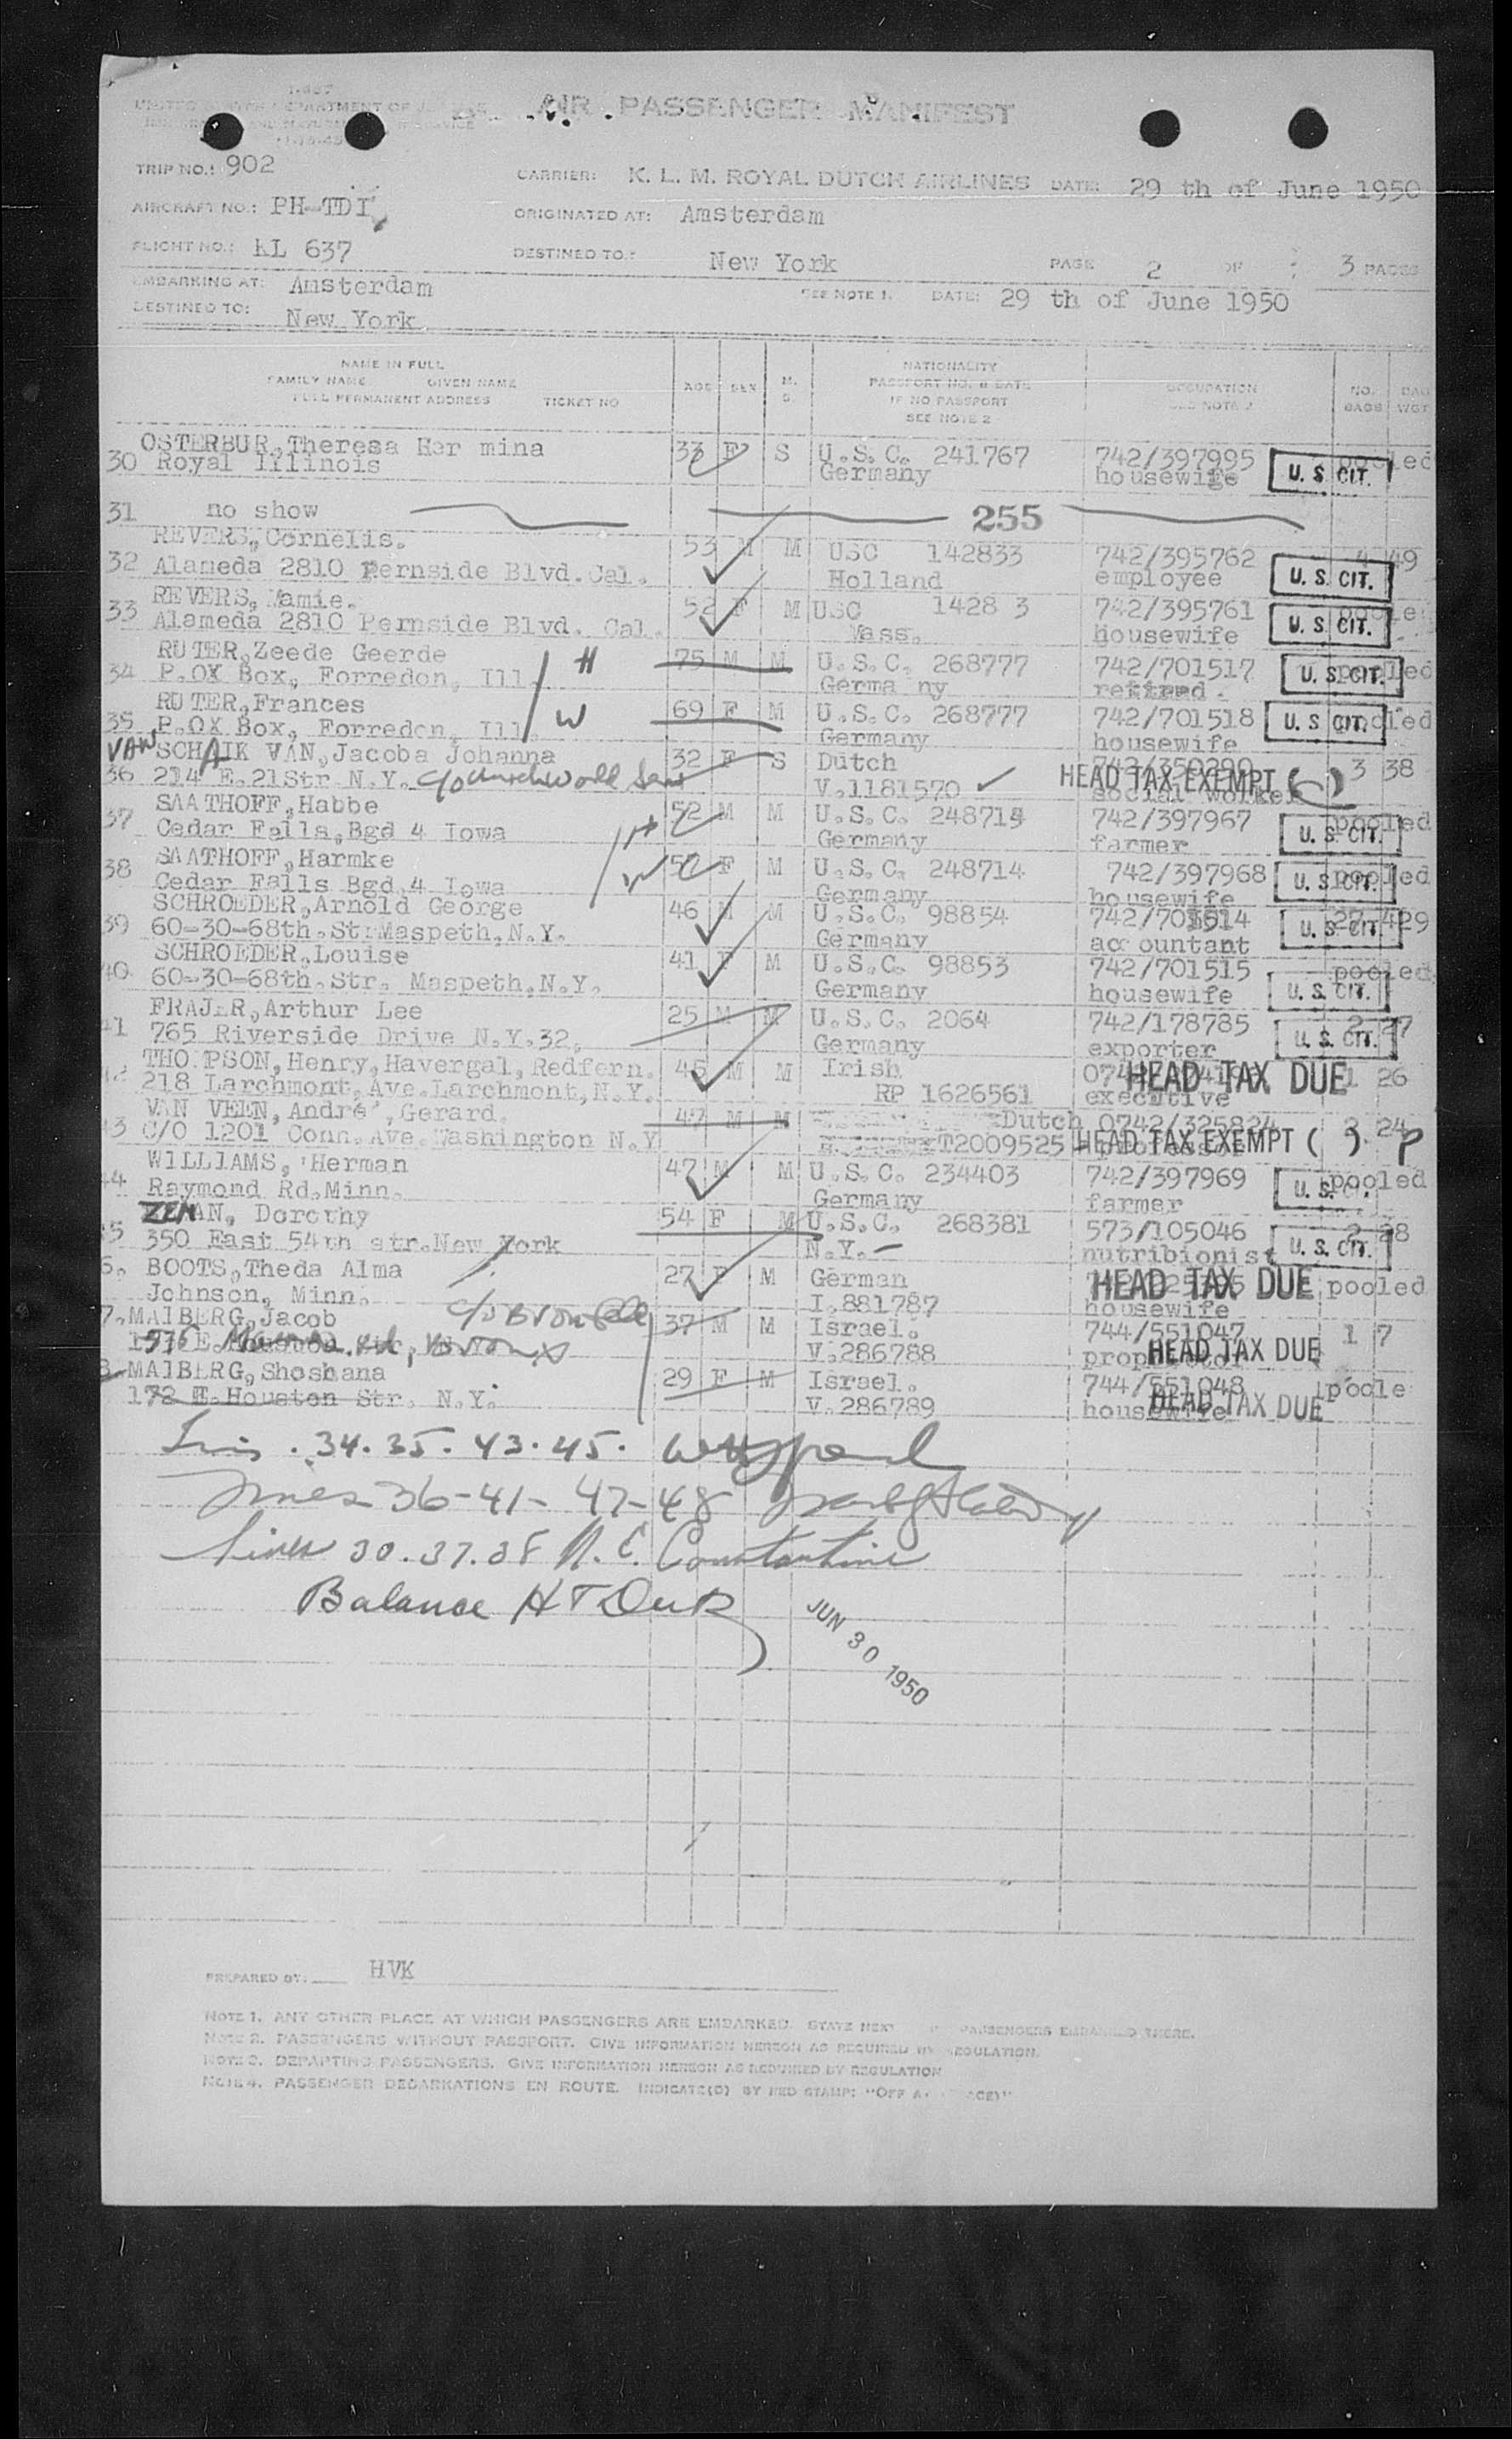 AIR PASSENGER MANIFEST
TRIP NO.: 902
CARRIER: K. L. M. ROYAL DUTCH AIRLINES DATE: 29 th of June 1950
AIRCRAFT NO.: PH-TDI
ORIGINATED AT: Amsterdam
FLIGHT NO.: KL 637
DESTINED TO: New York
PAGE 2 OF 3 PAGES
EMBARKING AT: Amsterdam
SEE NOTE 1. DATE: 29 th of June 1950
DESTINED TO: New York
NAME IN FULL
FAMILY NAME GIVEN NAME
FULL PERMANENT ADDRESS TICKET NO
AGE SEX M. S.
NATIONALITY
PASSPORT NO. & DATE
IF NO PASSPORT
SEE NOTE 2
OCCUPATION
SEE NOTE 3
NO. BAGS
BAG WGT
OSTERBUR, Theresa Her mina 33 F S U.S.C. 241767 742/397995 pooled
30 Royal Illinois Germany housewife U. S. CIT.
31 no show 255
REVERS, Cornelis. 53 M M USC 142833 742/395762 4 49
32 Alameda 2810 Fernside Blvd. Cal. Holland employee U. S. CIT.
REVERS, Mamie. 52 F M USC 1428 3 742/395761 poole
33 Alameda 2810 Fernside Blvd. Cal. Mass. housewife U. S. CIT.
RUTER, Zeede Geerde H 75 M M U.S.C. 268777 742/701517 pooled
34 P.OX Box, Forredon, Ill. Germa ny retired. U. S. CIT.
RUTER, Frances 69 F M U.S.C. 268777 742/701518 pooled
35 P.OX Box, Forredon, Ill. W Germany housewife U. S. CIT.
VAN SCHAIK VAN, Jacoba Johanna 32 F S Dutch 742/350290 3 38
36 214 E. 21Str N.Y. c/o Church World Serv V.1181570 social worker HEAD TAX EXEMPT ( )
SAATHOFF, Habbe H 52 M M U.S.C. 248715 742/397967 pooled
37 Cedar Falls, Bgd 4 Iowa Germany farmer U. S. CIT.
SAATHOFF, Harmke W 50 F M U.S.C. 248714 742/397968 pooled
38 Cedar Falls Bgd 4 Iowa Germany housewife U. S. CIT.
SCHROEDER, Arnold George 46 M M U.S.C. 98854 742/701514 27 429
39 60-30-68th. St. Maspeth, N.Y. Germany accountant U. S. CIT.
SCHROEDER, Louise 41 F M U.S.C. 98853 742/701515 pooled
40 60-30-68th. Str. Maspeth, N.Y. Germany housewife U. S. CIT.
FRAJER, Arthur Lee 25 M M U.S.C. 2064 742/178785 2 27
41 765 Riverside Drive N.Y.32. Germany exporter U. S. CIT.
THO PSON, Henry, Havergal, Redfern. 45 M M Irish HEAD TAX DUE 1 26
218 Larchmont. Ave. Larchmont, N.Y. RP 1626561 executive
VAN VEEN, André, Gerard. 47 M M Dutch 0742/325824 2 24
C/O 1201 Conn. Ave. Washington N.Y T2009525 HEAD TAX EXEMPT ( ) P
WILLIAMS, Herman 47 M M U.S.C. 234403 742/397969 pooled
Raymond Rd. Minn. Germany farmer U. S. CIT.
ZEMAN, Dorothy 54 F M U.S.C. 268381 573/105046 2 28
350 East 54th str. New York N.Y. nutribionist U. S. CIT.
BOOTS, Theda Alma 27 F M German HEAD TAX DUE pooled
Johnson, Minn. I.881787 housewife
MALBERG, Jacob 37 M M Israel. 744/551047 1 7
V.286788 HEAD TAX DUE
MALBERG, Shoshana 29 F M Israel. 744/551048 poole
172 E. Houston Str. N.Y. V.286789 housewife HEAD TAX DUE
34. 35. 43. 45.
Lines 36-41-47-48
Lines 30.37.38 N. E. Constantine
Balance HT
JUN 30 1950
PREPARED BY: HVK
NOTE 1. ANY OTHER PLACE AT WHICH PASSENGERS ARE EMBARKED. STATE NEXT PASSENGERS EMBARKED THERE.
NOTE 2. PASSENGERS WITHOUT PASSPORT. GIVE INFORMATION HEREON AS REQUIRED BY REGULATION.
NOTE 3. DEPARTING PASSENGERS. GIVE INFORMATION HEREON AS REQUIRED BY REGULATION
NOTE 4. PASSENGER DEBARKATIONS EN ROUTE. INDICATE(D) BY RED STAMP: "OFF AT